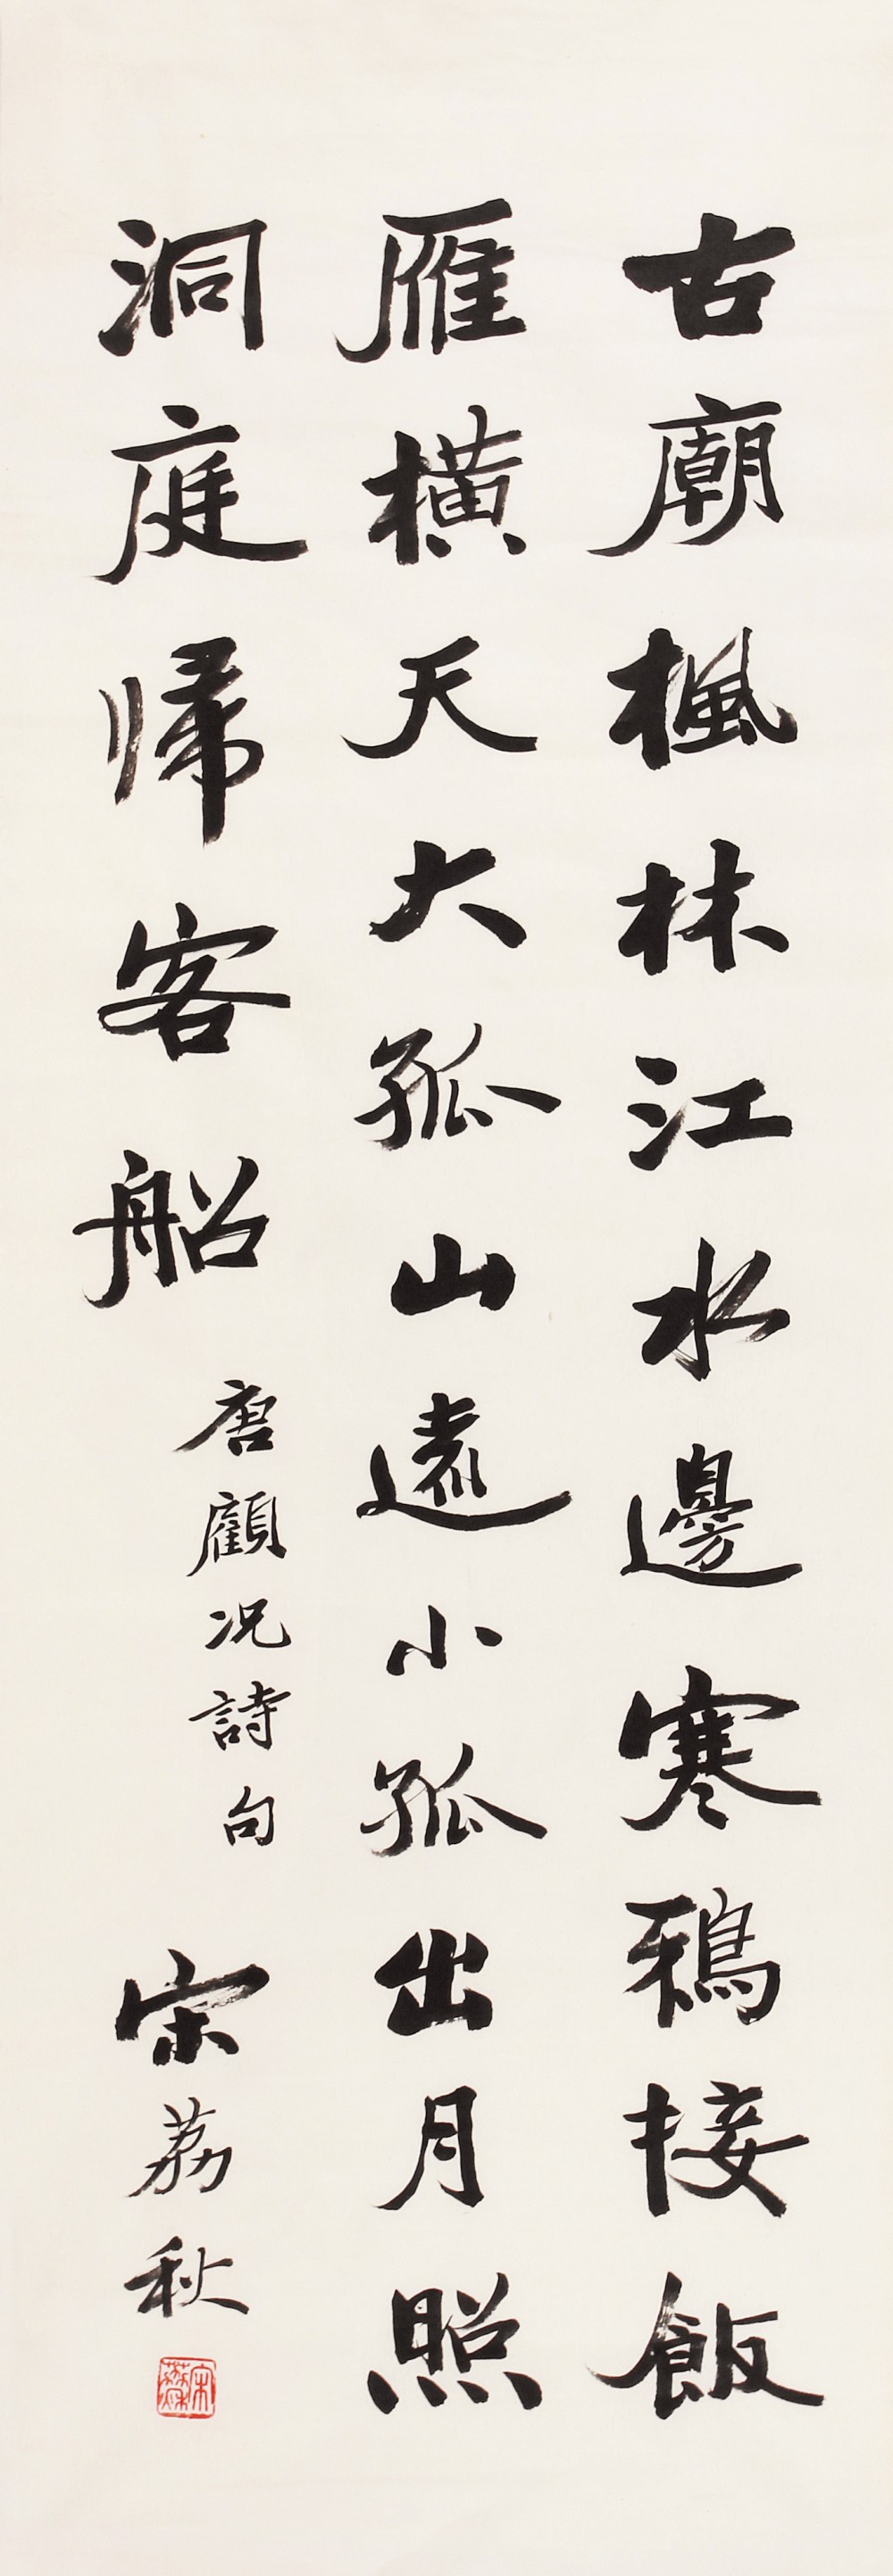 古廟楓林江水邊寒鴉接飯
雁橫天大孤山遠小孤出月照
洞庭歸客船
唐顧況詩句
宋荔秋